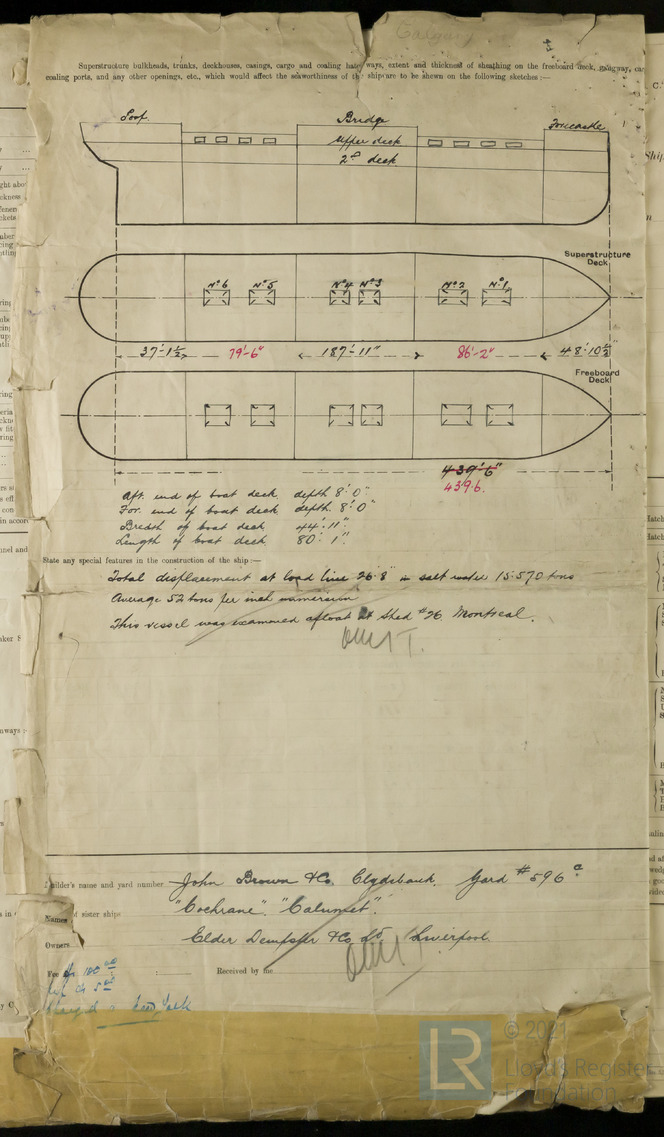 Calgary
Superstructure bulkheads, trunks, deckhouses, casings, cargo and coaling hatchways, extent and thickness of sheathing on the freeboard deck, gangway, car
coaling ports, and any other openings, etc., which would affect the seaworthiness of the ship are to be shewn on the following sketches :—
Poof. Bridge Forecastle
Upper deck
2nd deck
Superstructure
Deck
No 6 No 5 No 4 No 3 No 2 No 1
37'-1½" 79'-6" 187'-11" 86'-2" 48'-10½"
Freeboard
Deck
439'-6"
439.6.
Aft. end of boat deck. depth 8'.0"
For. end of boat deck depth. 8'.0"
Breadth of boat deck 44'-11".
Length of boat deck 80'. 1".
State any special features in the construction of the ship :—
Total displacement at load line 26.8" in salt water 15.570 tons
Average 52 tons per inch immersion
This vessel was examined afloat at Shed #26 Montreal.
Builder's name and yard number John Brown & Co. Clydebank. Yard #596
Names of sister ships "Cochrane". "Calumet".
Owners Elder Dempster & Co Ld Liverpool.
Fee 100
5
Received by me
Charged New York
LR © 2021
Lloyd's Register
Foundation